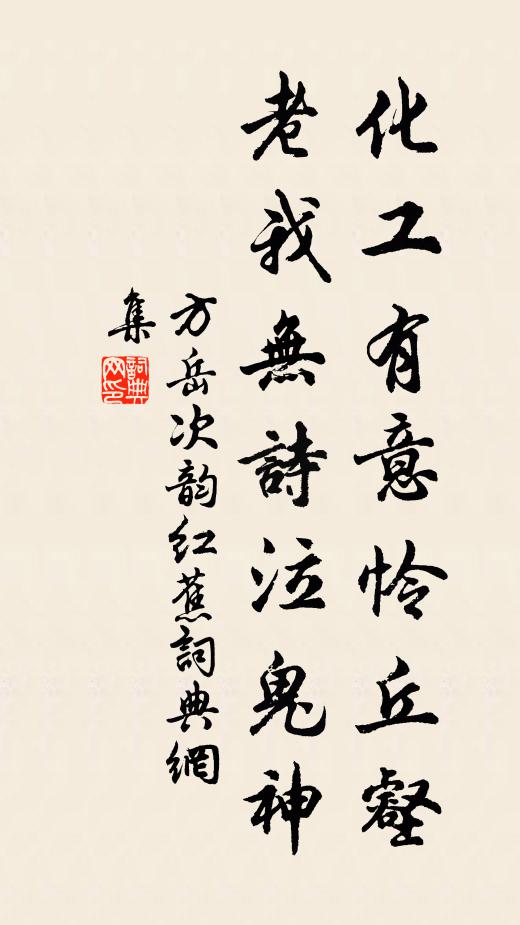 化工有意怜丘壑
老我無詩泣鬼神
方岳次韵红蕉詞典網
集
詞典
网印